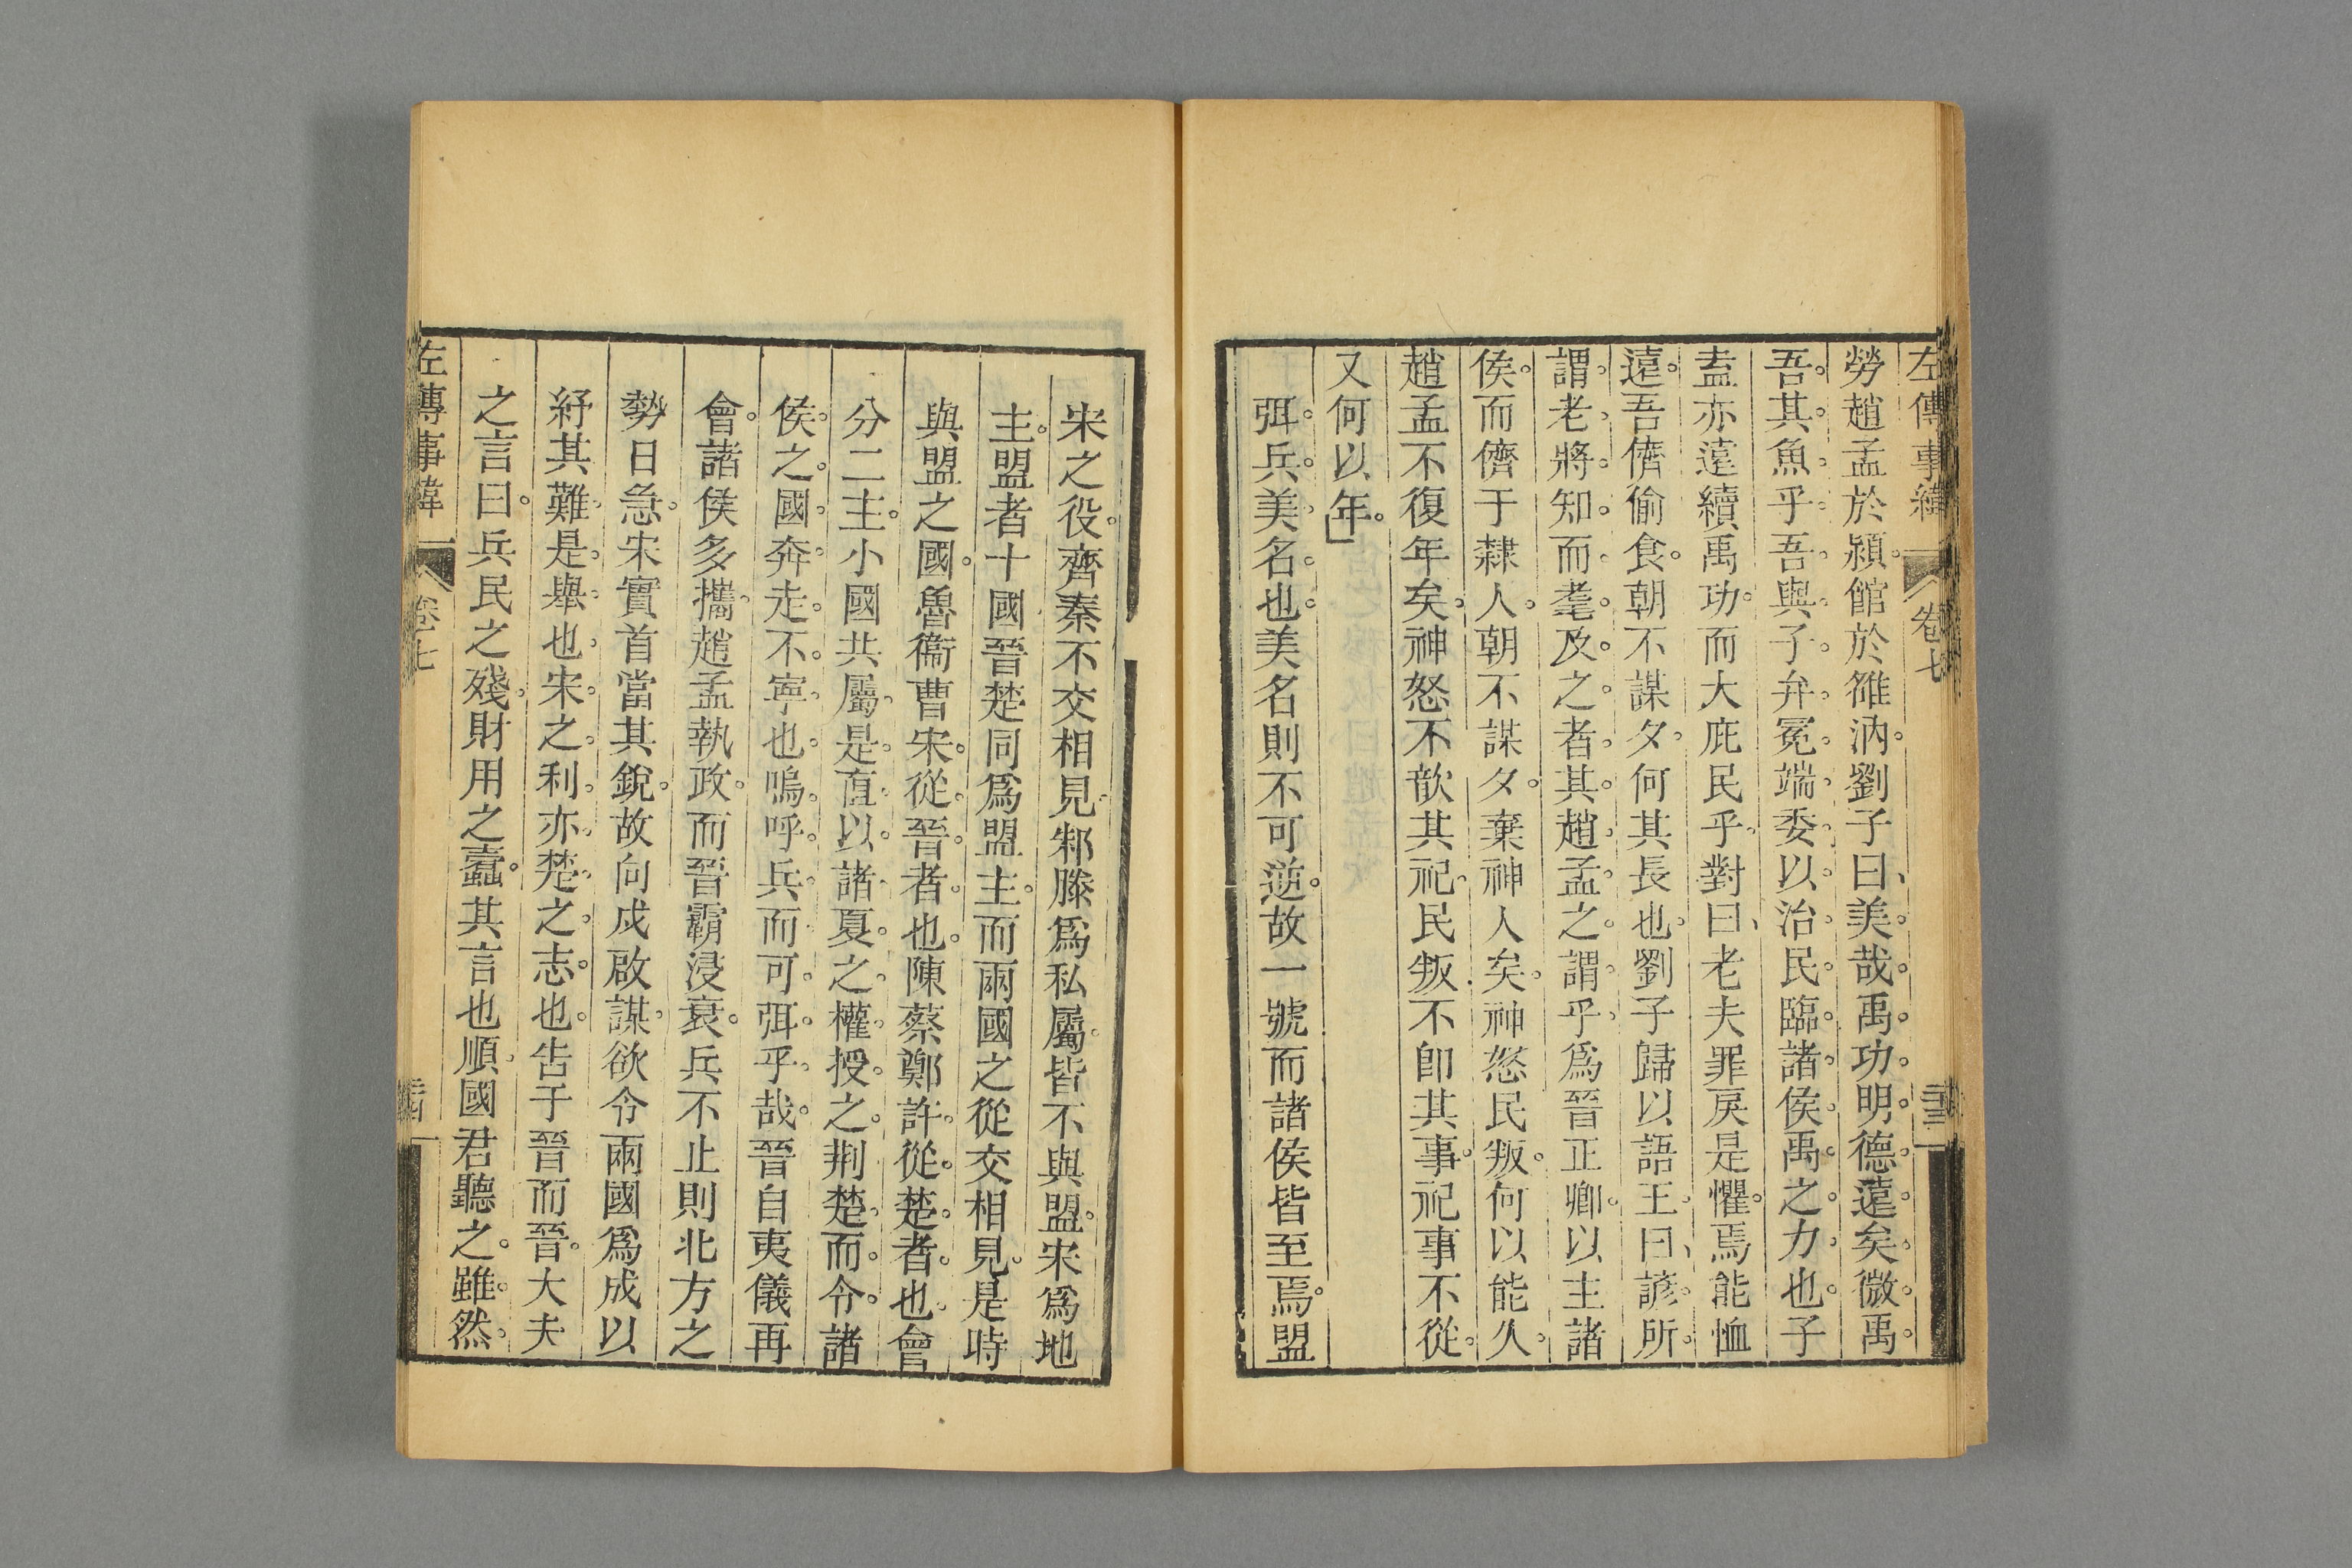 左傳事緯 卷七 三三
勞趙孟於潁館於雒汭劉子曰美哉禹功明德遠矣微禹
吾其魚乎吾與子弁冕端委以治民臨諸侯禹之力也子
盍亦遠績禹功而大庇民乎對曰老夫罪戾是懼焉能恤
遠吾儕偷食朝不謀夕何其長也劉子歸以語王曰諺所
謂老將知而耄及之者其趙孟之謂乎爲晉正卿以主諸
侯而儕于隸人朝不謀夕棄神人矣神怒民叛何以能久
趙孟不復年矣神怒不歆其祀民叛不卽其事祀事不從
又何以年
弭兵美名也美名則不可逆故一號而諸侯皆至焉盟
宋之役齊秦不交相見邾滕爲私屬皆不與盟宋爲地
主盟者十國晉楚同爲盟主而兩國之從交相見是時
與盟之國魯衞曹宋從晉者也陳蔡鄭許從楚者也會
分二主小國共屬是直以諸夏之權授之荆楚而令諸
侯之國奔走不寧也嗚呼兵而可弭乎哉晉自夷儀再
會諸侯多攜趙孟執政而晉霸浸衰兵不止則北方之
勢日急宋實首當其銳故向戌啟謀欲令兩國爲成以
紓其難是舉也宋之利亦楚之志也告于晉而晉大夫
之言曰兵民之殘財用之蠹其言也順國君聽之雖然
左傳事緯 卷七